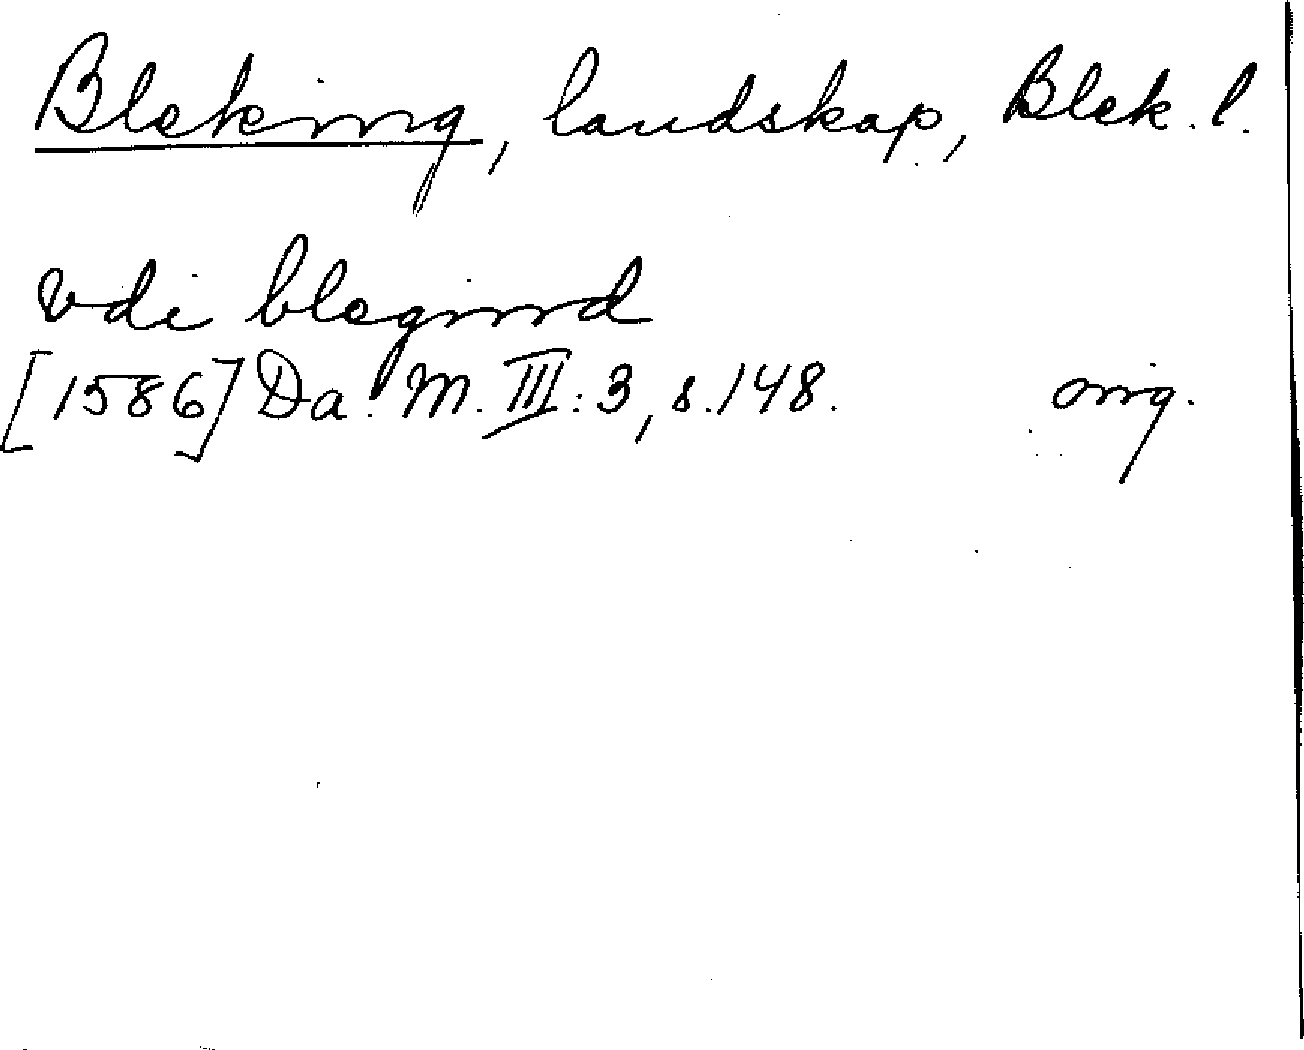 Bleking, landskap, Blek. l.
vdi blegind
[1586] Da. M. III: 3, s. 148. orig.